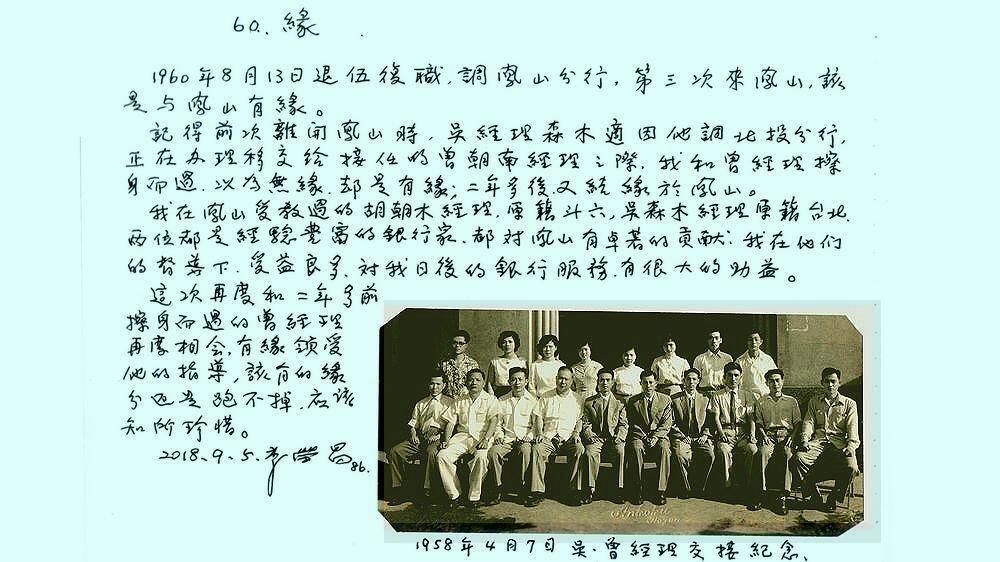 60. 緣
1960年8月13日退伍復職,調鳳山分行,第三次來鳳山,該
是与鳳山有緣。
記得前次離開鳳山時,吳經理森木適因他調北投分行,
正在办理移交給接任的曾朝南經理之際,我和曾經理擦
身而過,以為無緣,却是有緣;二年多後又續緣於鳳山。
我在鳳山受教過的胡朝木經理,原籍斗六,吳森木經理原籍台北,
兩位都是經驗豊富的銀行家,都對鳳山有卓著的貢献;我在他們
的督導下,受益良多,對我日後的銀行服務,有很大的助益。
這次再度和二年多前
擦身而過的曾經理
再度相会,有緣領受
他的指導,該有的緣
分还是跑不掉,应該
知所珍惜。
2018.9.5. 86.
1958年4月7日吳、曾經理交接紀念.